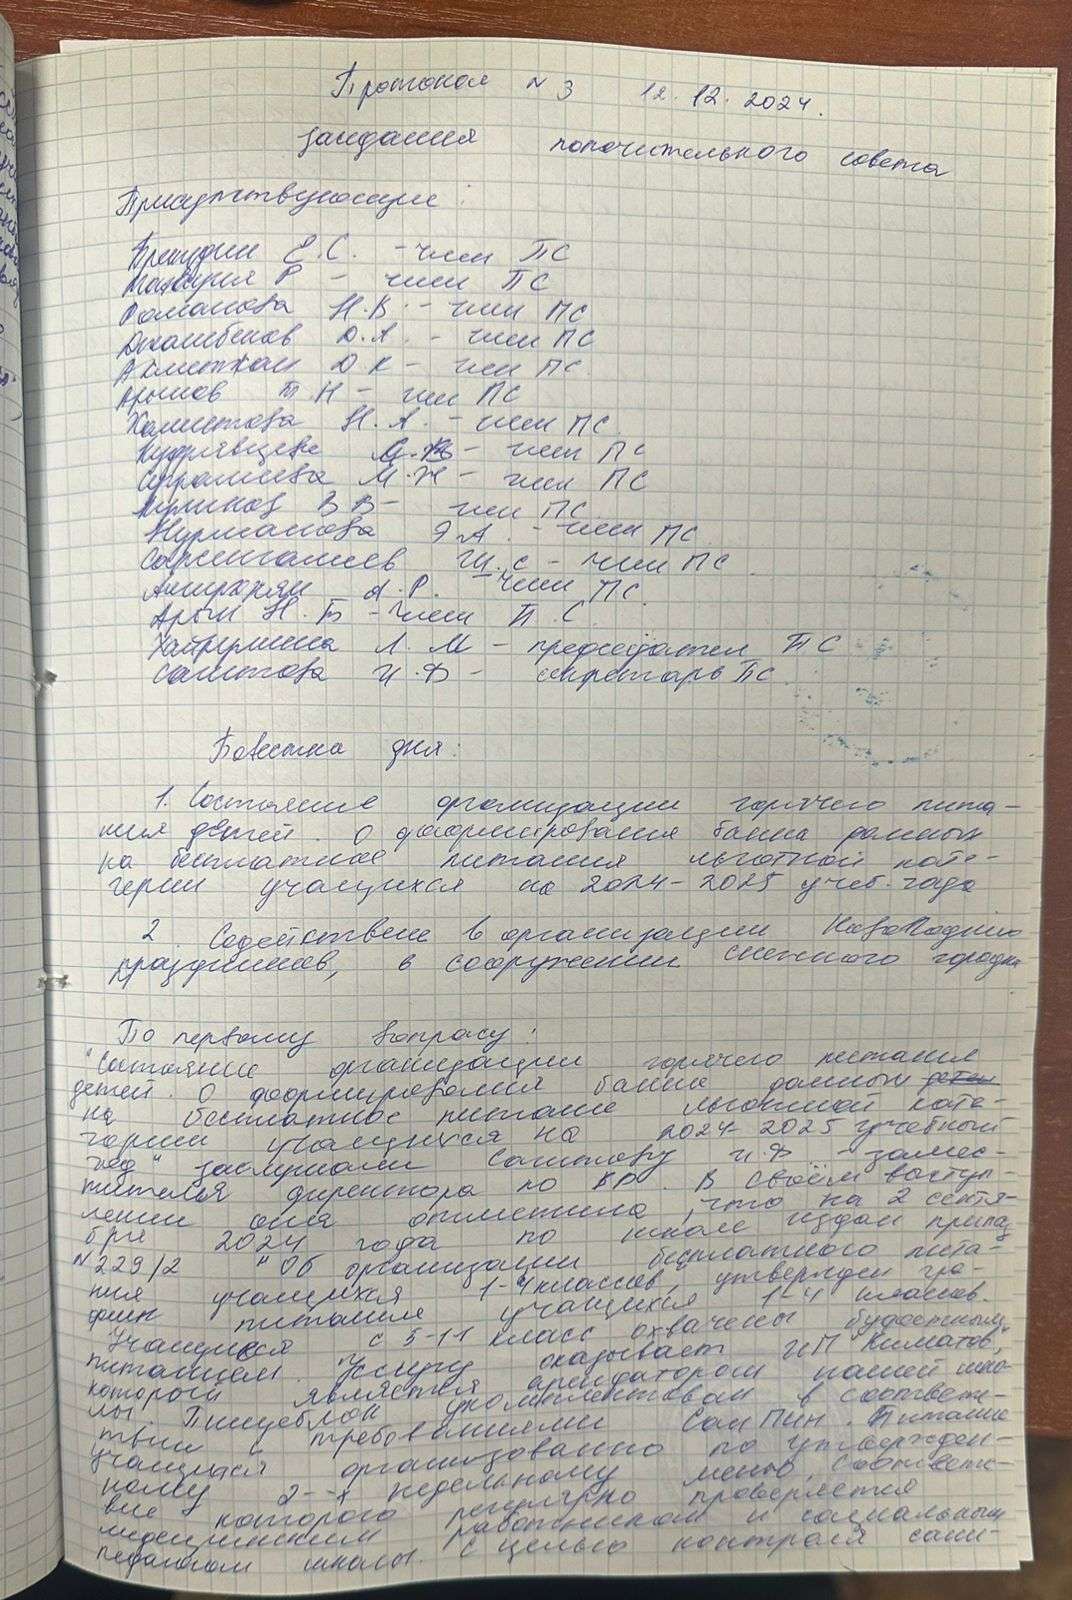 Протокол №3 12.12.2024.
заседания попечительного совета
Присутствующие:
Е.С. - член ПС
Р - член ПС
Романова Н.В. - член ПС
Джамбеков Д.А. - член ПС
Ахметжан Д К - член ПС
Арынов Т.Н - член ПС
Хамитова Н.А. - член ПС
Кудрявцева - член ПС
М.Ж - член ПС
Куликов В В - член ПС
Нурманова Э А. - член ПС
Сарсенгалиев Ш.С - член ПС
А.Р. - член ПС
Арын Н.Б - член П.С.
Хайруллина Л.М - председатель ПС
Саитова И.Ф - секретарь ПС
Повестка дня:
1. Состояние организации горячего пита-
ния детей. О формировании банка данных
на бесплатное питания льготной кате-
гории учащихся на 2024-2025 учеб. года
2. Содействие в организации Новогодних
праздников, в сооружении снежного городка
По первому вопросу:
"Состояние организации горячего питания
детей. О формировании банка данных детей
на бесплатное питание льготной кате-
гории учащихся на 2024-2025 учебный
год" заслушали Саитову И.Ф - замес-
тителя директора по ВР. В своём выступ-
лении она отметила, что на 2 сентя-
бря 2024 года по школе издан приказ
№229/2 "Об организации бесплатного пита-
ния учащихся 1-4 классов, утвержден гра-
фик питания учащихся 1-4 классов.
Учащиеся с 5-11 класс охвачены буфетным
питанием. Услугу оказывает ИП "Киматов",
который является арендатором нашей шко-
лы. Пищеблок укомплектован в соответс-
твии с требованиями СанПин. Питание
учащихся организованно по утвержден-
ному 2-х недельному меню, соответс-
вие которого регулярно проверяется
медицинским работником и социальным
педагогом школы. С целью контроля сани-